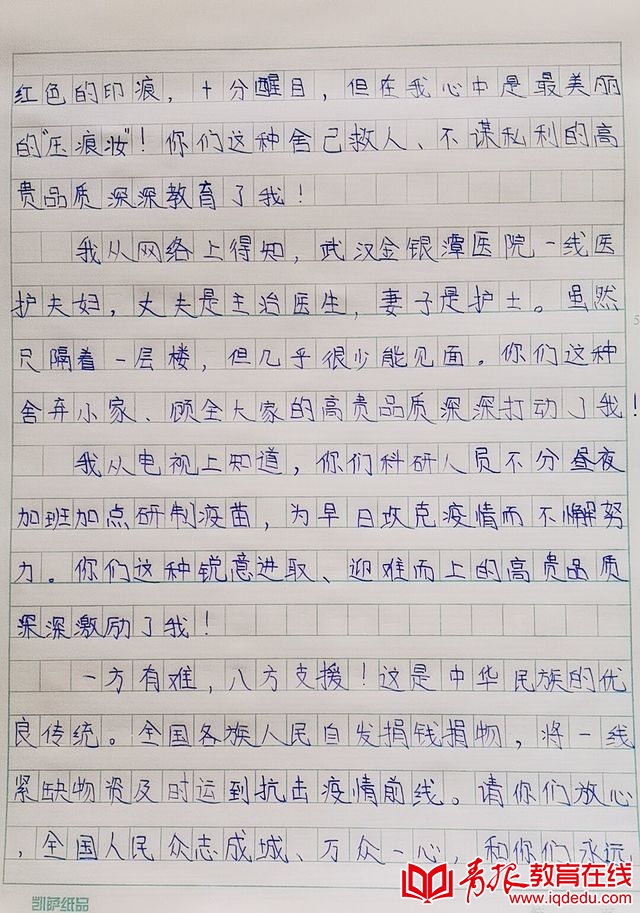 红色的印痕，十分醒目，但在我心中是最美丽
的“压痕妆”！你们这种舍己救人、不谋私利的高
贵品质深深教育了我！
我从网络上得知，武汉金银潭医院一线医
护夫妇，丈夫是主治医生，妻子是护士。虽然
只隔着一层楼，但几乎很少能见面。你们这种
舍弃小家、顾全大家的高贵品质深深打动了我！
我从电视上知道，你们科研人员不分昼夜
加班加点研制疫苗，为早日攻克疫情而不懈努
力。你们这种锐意进取、迎难而上的高贵品质
深深激励了我！
一方有难，八方支援！这是中华民族的优
良传统。全国各族人民自发捐钱捐物，将一线
紧缺物资及时运到抗击疫情前线。请你们放心
，全国人民众志成城、万众一心，和你们永远
凯萨纸品
青报教育在线
www.iqdedu.com
5